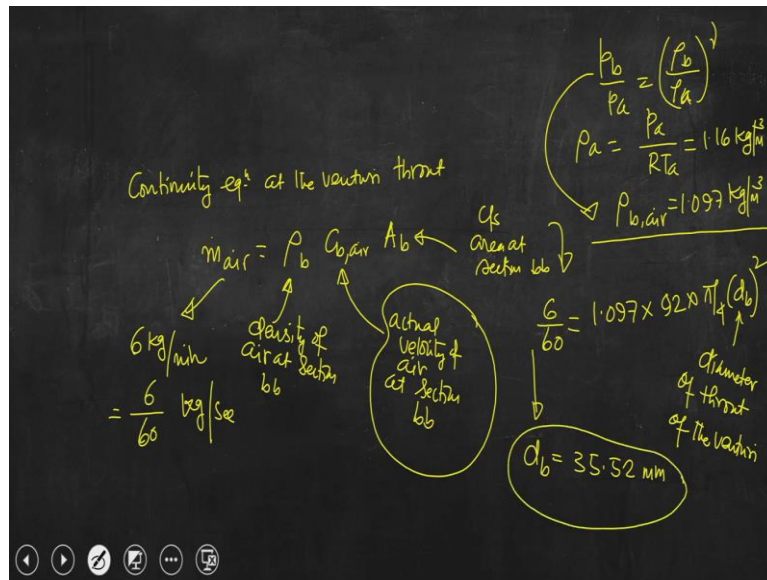 p_b/p_a = (ρ_b/ρ_a)^γ
ρ_a = p_a/RT_a = 1.16 kg/m³
ρ_b,air = 1.097 kg/m³
Continuity eqⁿ at the venturi throat
ṁ_air = ρ_b C_b,air A_b
c/s
area at
section bb
6 kg/min
= 6/60 kg/sec
density of
air at section
bb
actual
velocity of
air
at section
bb
6/60 = 1.097 × 92 × π/4 (d_b)²
diameter
of throat
of the venturi
d_b = 35.52 mm